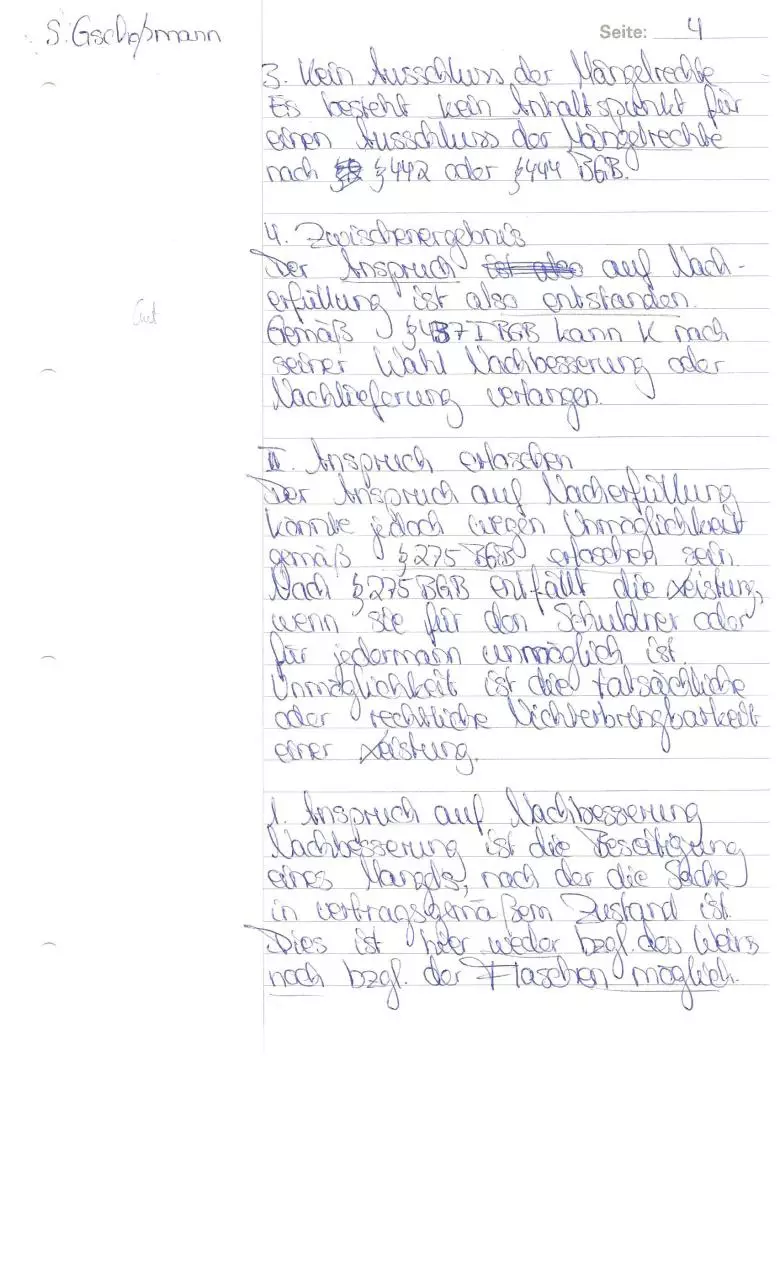 S. Gschoßmann
Seite: 4
3. Kein Ausschluss der Mängelrechte
Es besteht kein Anhaltspunkt für
einen Ausschluss der Mängelrechte
nach § 442 oder § 444 BGB.
4. Zwischenergebnis
Der Anspruch auf Nach-
erfüllung ist also entstanden.
Gut
Gemäß § 437 I BGB kann K nach
seiner Wahl Nachbesserung oder
Nachlieferung verlangen.
II. Anspruch erloschen
Der Anspruch auf Nacherfüllung
könnte jedoch wegen Unmöglichkeit
gemäß § 275 BGB erloschen sein.
Nach § 275 BGB entfällt die Leistung,
wenn sie für den Schuldner oder
für jedermann unmöglich ist.
Unmöglichkeit ist die tatsächliche
oder rechtliche Nichterbringbarkeit
einer Leistung.
1. Anspruch auf Nachbesserung
Nachbesserung ist die Beseitigung
eines Mangels, nach der die Sache
in vertragsgemäßem Zustand ist.
Dies ist hier weder bzgl. des Weins
noch bzgl. der Flaschen möglich.